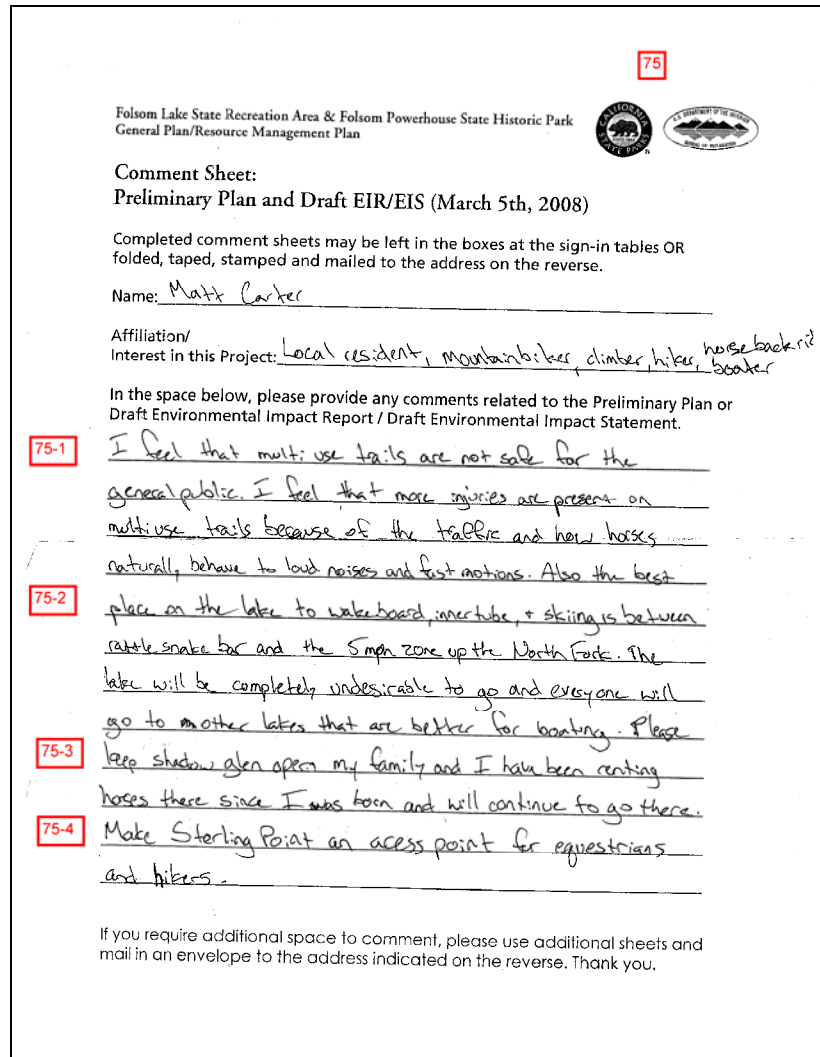 75
Folsom Lake State Recreation Area & Folsom Powerhouse State Historic Park
General Plan/Resource Management Plan
CALIFORNIA
STATE PARKS
U.S. DEPARTMENT OF THE INTERIOR
BUREAU OF RECLAMATION
Comment Sheet:
Preliminary Plan and Draft EIR/EIS (March 5th, 2008)
Completed comment sheets may be left in the boxes at the sign-in tables OR
folded, taped, stamped and mailed to the address on the reverse.
Name: Matt Carter
Affiliation/
Interest in this Project: Local resident, mountainbiker, climber, hiker, horseback ri
boater
In the space below, please provide any comments related to the Preliminary Plan or
Draft Environmental Impact Report / Draft Environmental Impact Statement.
75-1 I feel that multi use trails are not safe for the
general public. I feel that more injuries are present on
multi use trails because of the traffic and how horses
naturally behave to loud noises and fast motions. Also the best
75-2 place on the lake to wakeboard, innertube, + skiing is between
rattle snake bar and the 5 mph zone up the North Fork. The
lake will be completely undesirable to go and everyone will
go to other lakes that are better for boating. Please
75-3 keep shadow glen open my family and I have been renting
horses there since I was born and will continue to go there.
75-4 Make Sterling Point an acess point for equestrians
and hikers.
If you require additional space to comment, please use additional sheets and
mail in an envelope to the address indicated on the reverse. Thank you.